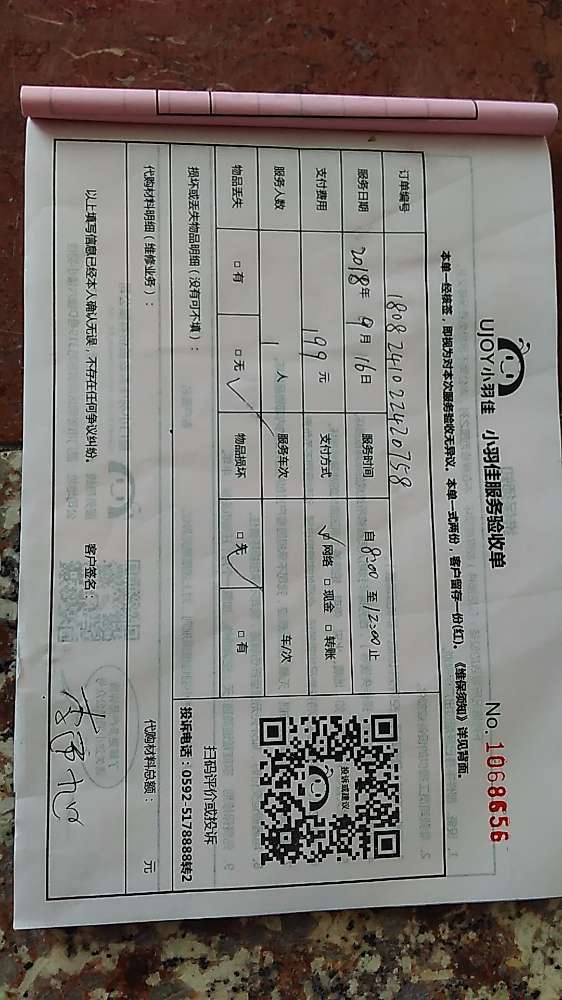 UJOY小羽佳 小羽佳服务验收单 No 1068656
本单一经核签，即视为对本次服务验收无异议。本单一式两份，客户留存一份(红)。《维保须知》详见背面。
订单编号 1808241022420758
服务日期 2018年9月16日 服务时间 自8:00至12:00止
支付费用 199元 支付方式 ☑网络 □现金 □转账
服务人数 1人 服务车次 车/次
物品丢失 □有 □无✓ 物品损坏 □无✓ □有
投诉或建议
扫码评价或投诉
投诉电话：0592-5178888转2
损坏或丢失物品明细（没有可不填）：
代购材料明细（维修业务）： 代购材料总额： 元
以上填写信息已经本人确认无误，不存在任何争议纠纷。 客户签名：